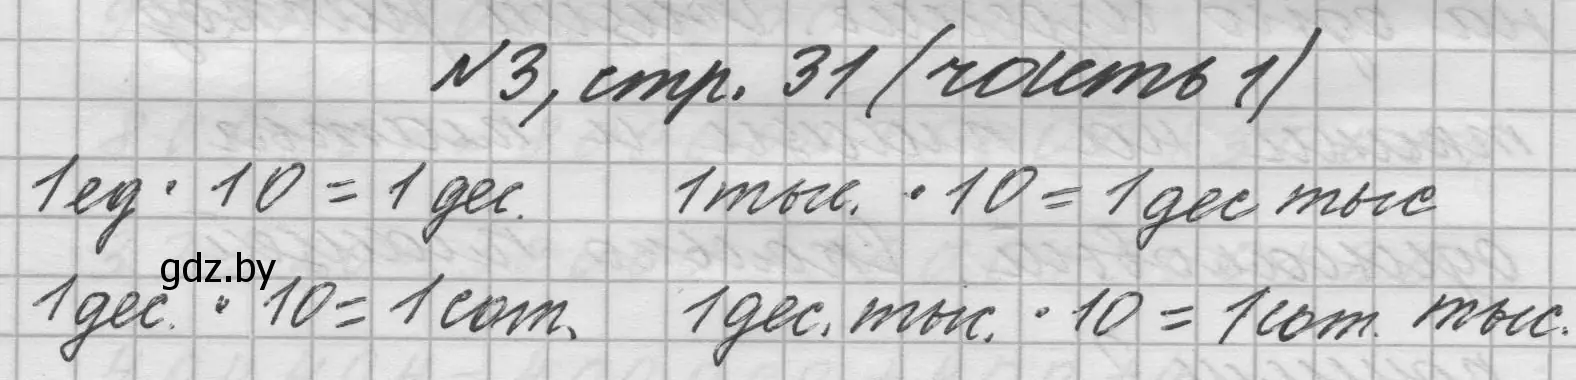 №3, стр. 31 (часть 1)
1ед · 10 = 1 дес. 1тыс. · 10 = 1 дес тыс
gdz.by
1дес. · 10 = 1 сот. 1дес. тыс. · 10 = 1сот. тыс.